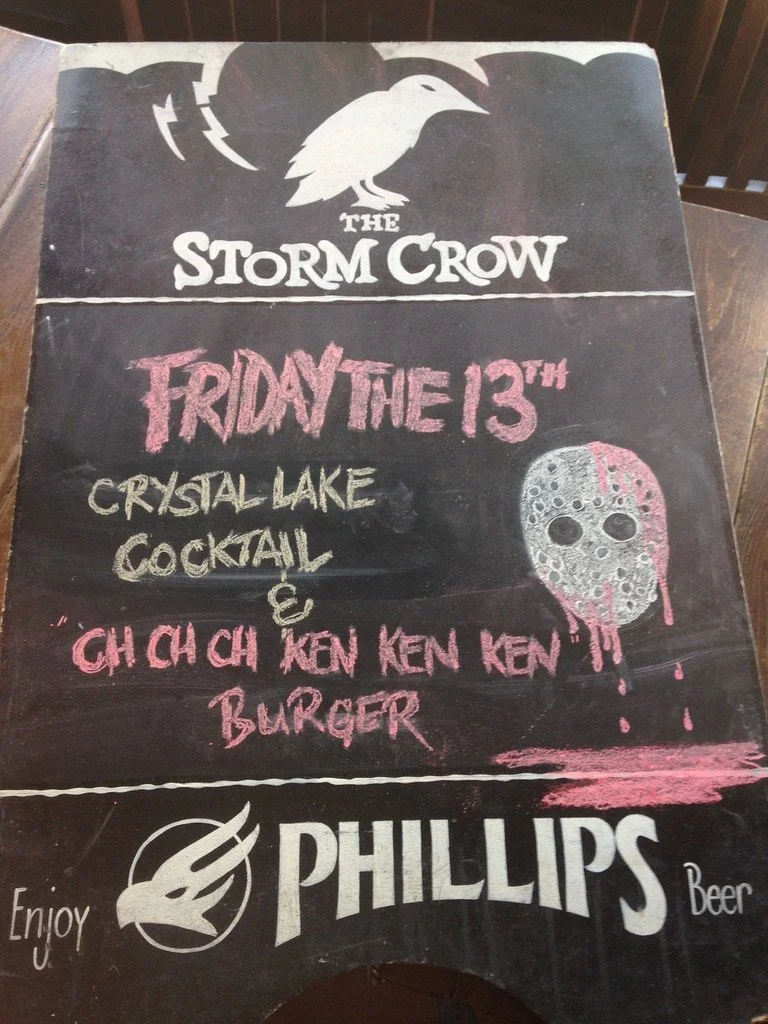 THE
STORM CROW
FRIDAY THE 13TH
CRYSTAL LAKE
COCKTAIL
&
"CH CH CH KEN KEN KEN"
BURGER
Enjoy PHILLIPS Beer